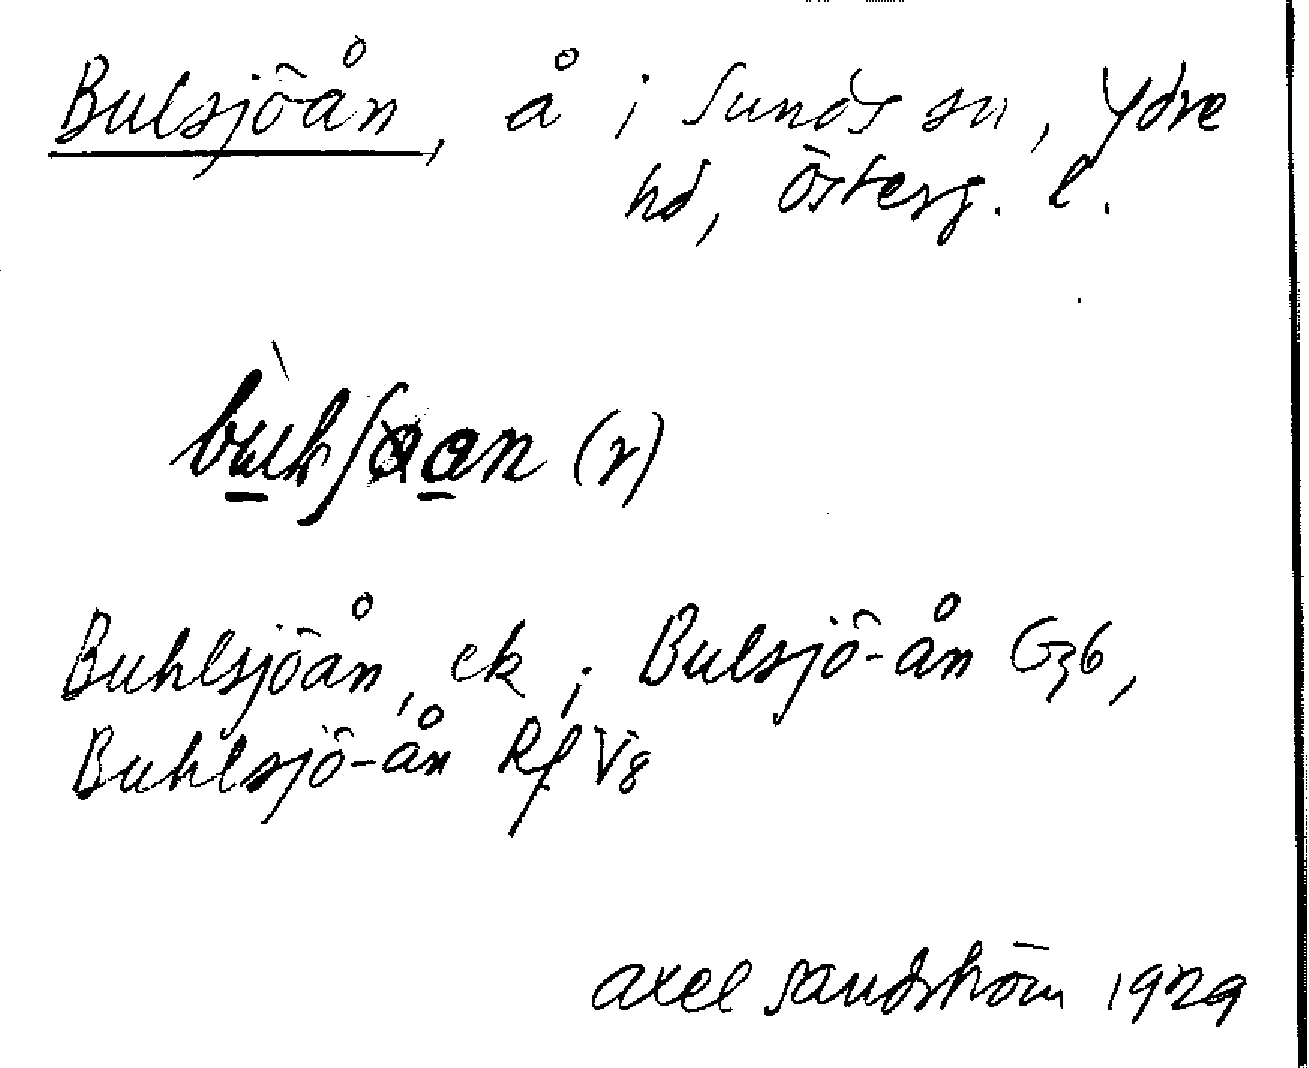 Bulsjöån, å i Sunds sn, Ydre
hd, Österg. l.
(r)
Buhlsjöån, ek; Bulsjö-ån G36,
Buhlsjö-ån Rf V8
Axel Sandström 1929